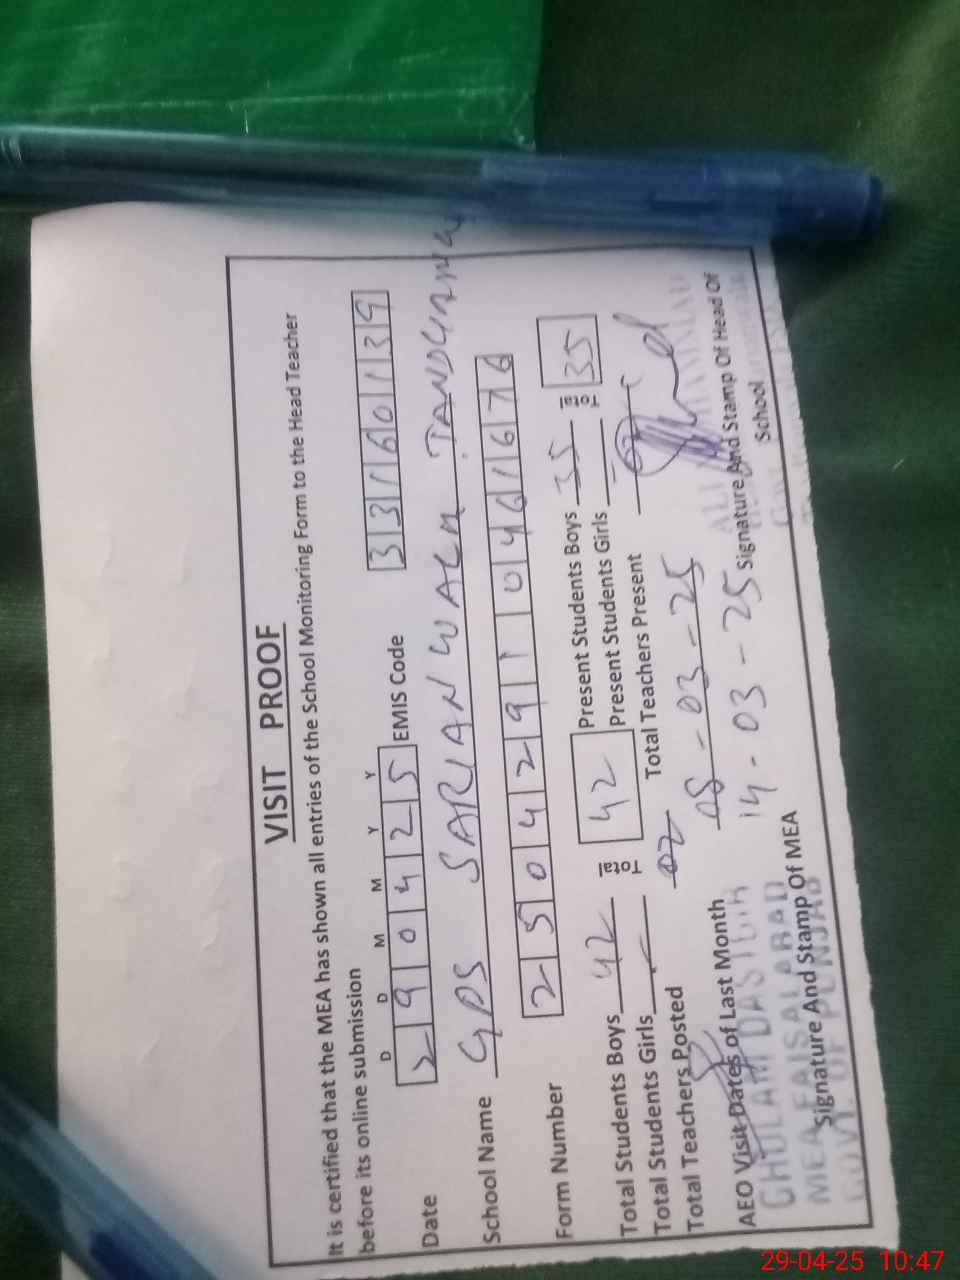 VISIT PROOF
It is certified that the MEA has shown all entries of the School Monitoring Form to the Head Teacher
before its online submission
D D M M Y Y
Date 2 9 0 4 2 5 EMIS Code 3 3 1 6 0 1 3 9
School Name GPS SARIANWALA
Form Number 2 5 0 4 2 9 1 1 0 4 6 1 6 7 6
Total Students Boys 42 Total 42 Present Students Boys 35 Total 35
Total Students Girls Present Students Girls
Total Teachers Posted 02 Total Teachers Present
08-03-25
AEO Visit Dates of Last Month 14-03-25
GHULAM DASTGIR
MEA FAISALABAD
GOVT. OF PUNJAB
Signature And Stamp Of MEA
Signature And Stamp Of Head Of
School
29-04-25 10:47